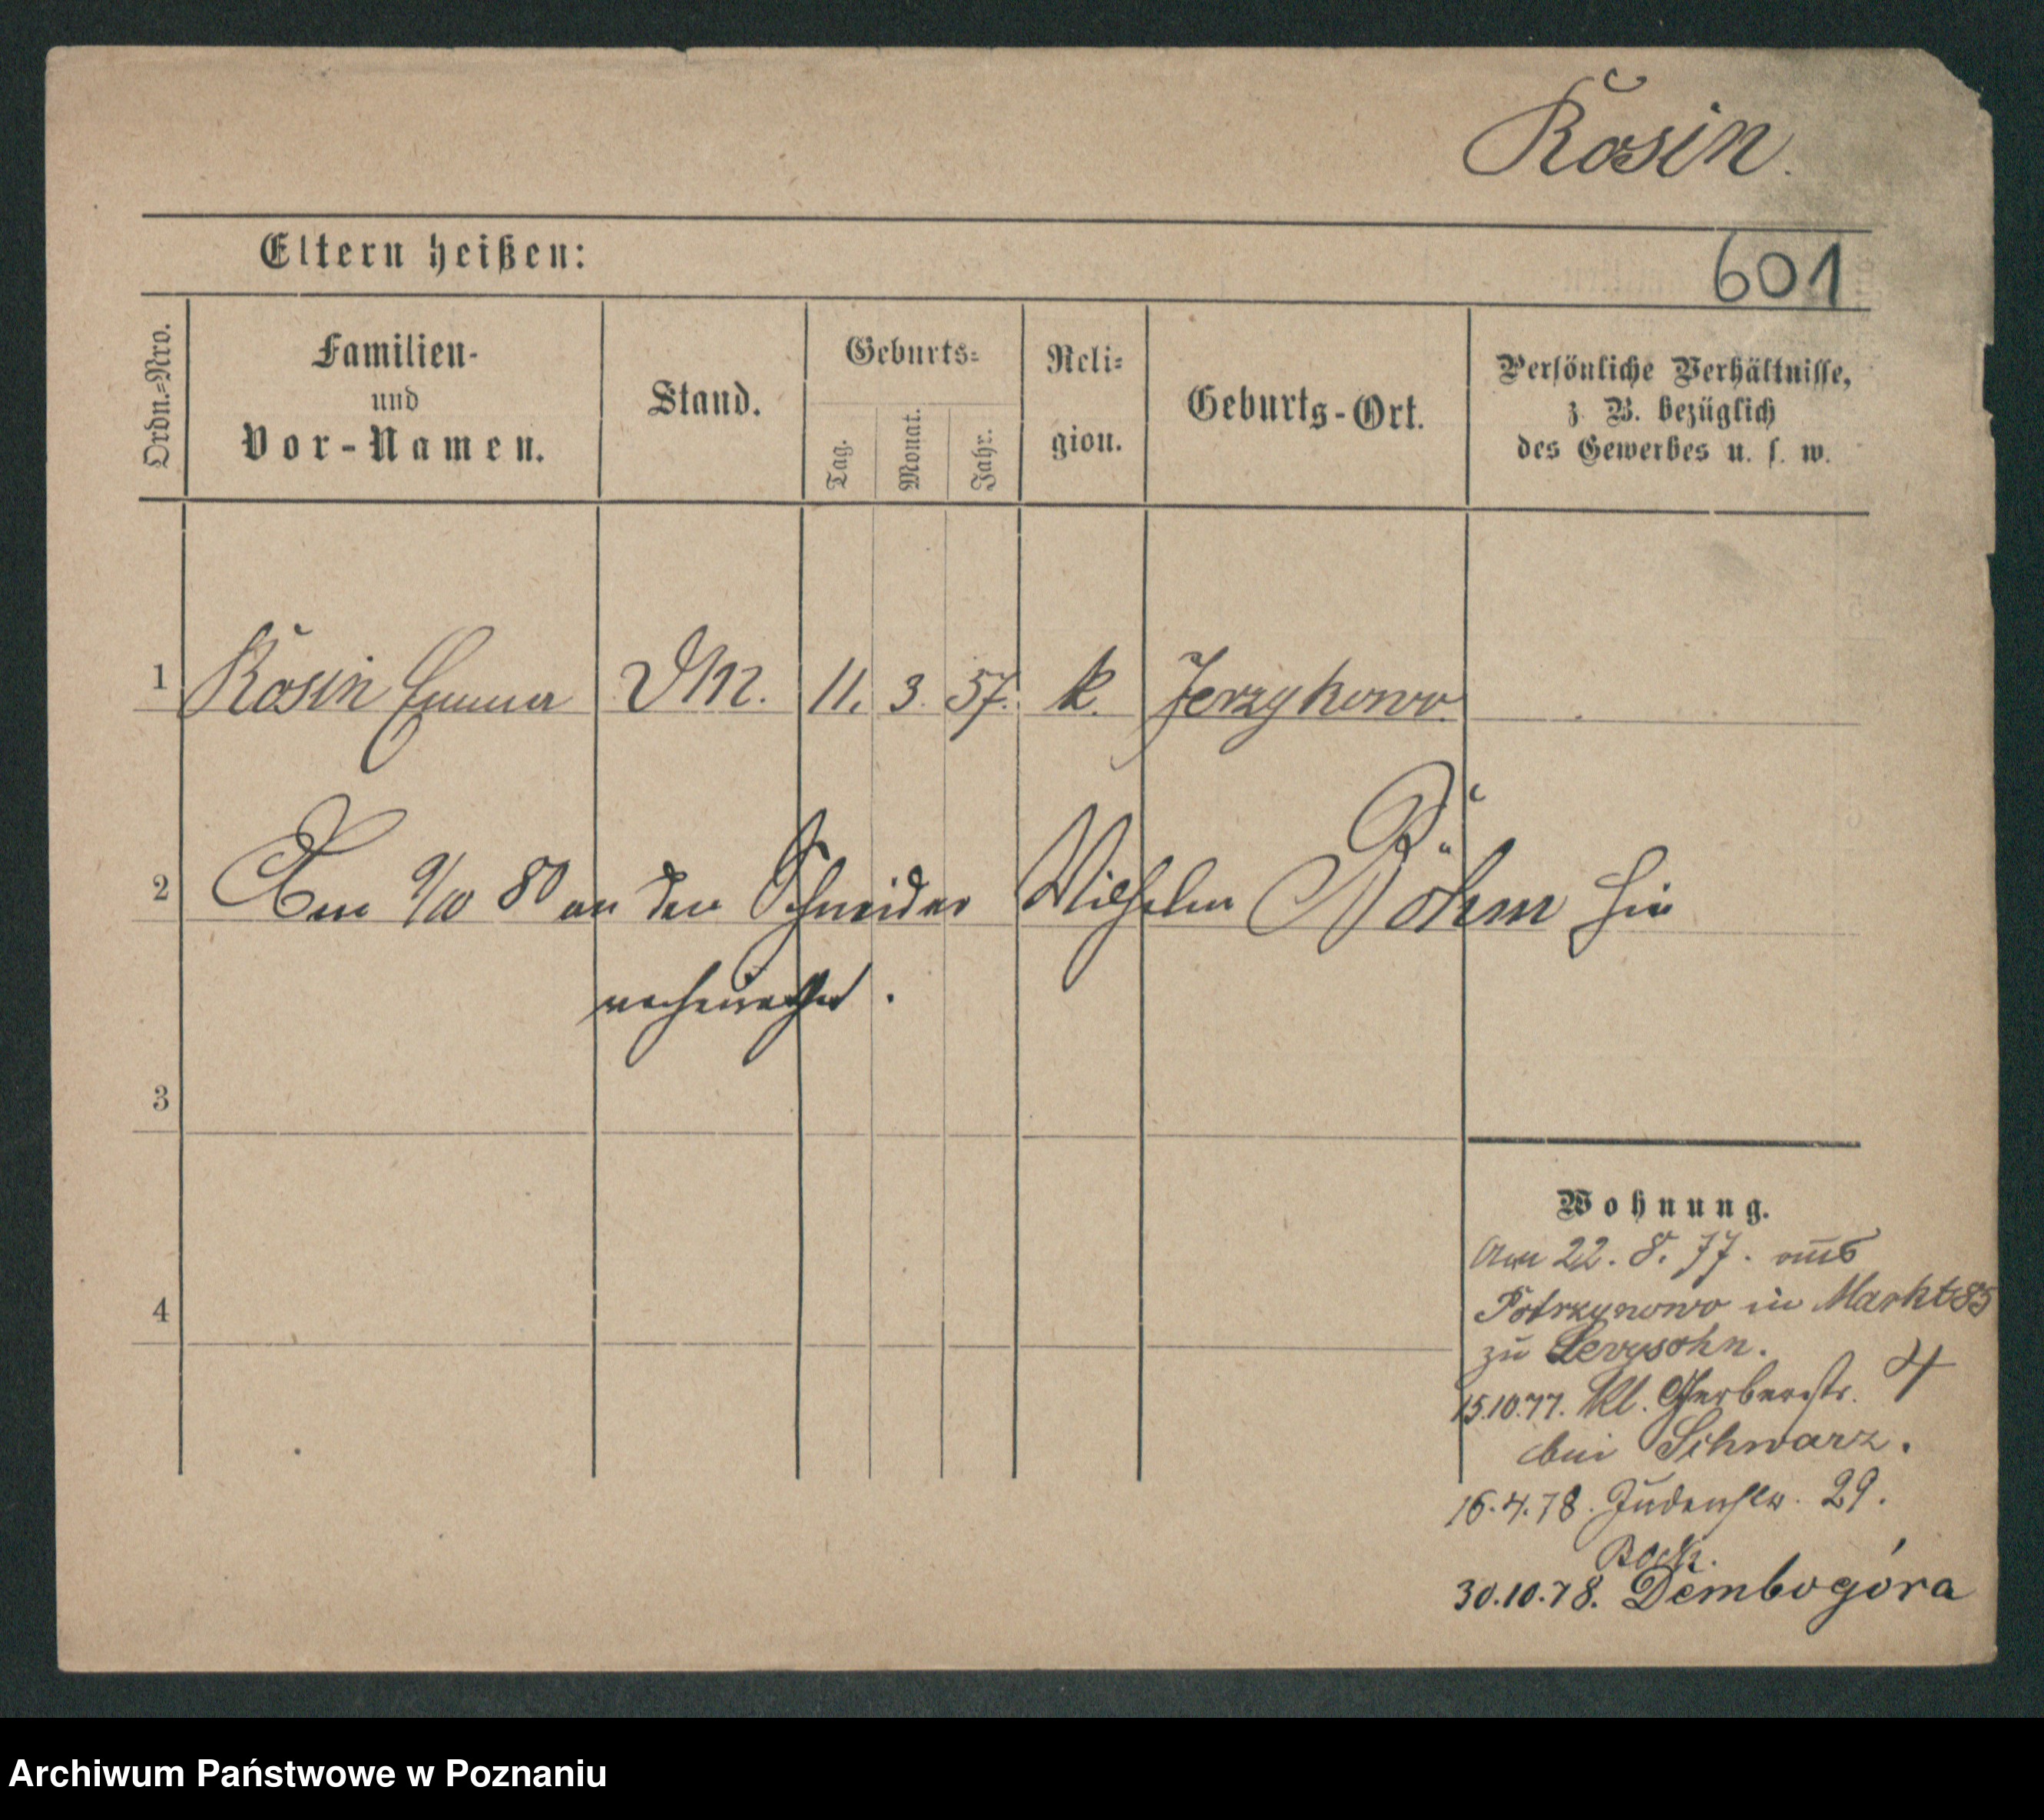 Rosin.
Eltern heißen:
601
Ordn.=Nro.
Familien-
und
Vor-Namen.
Stand.
Geburts=
Tag.
Monat.
Jahr.
Reli=
gion.
Geburts-Ort.
Persönliche Verhältnisse,
z. B. bezüglich
des Gewerbes u. s. w.
1 Rosin Emma DM. 11. 3. 57. k. Jerzykowo.
2 Am 9/10 80 an den Schneider Wilhelm Böhm hier
verheirathet.
3
4
Wohnung.
Am 22. 8. 77. aus
in Markt 85
zu Levysohn.
15.10.77. Kl. Gerberstr. 4
bei Schwarz.
16.4.78. Judenstr. 29.
30.10.78. Dembogóra
Archiwum Państwowe w Poznaniu